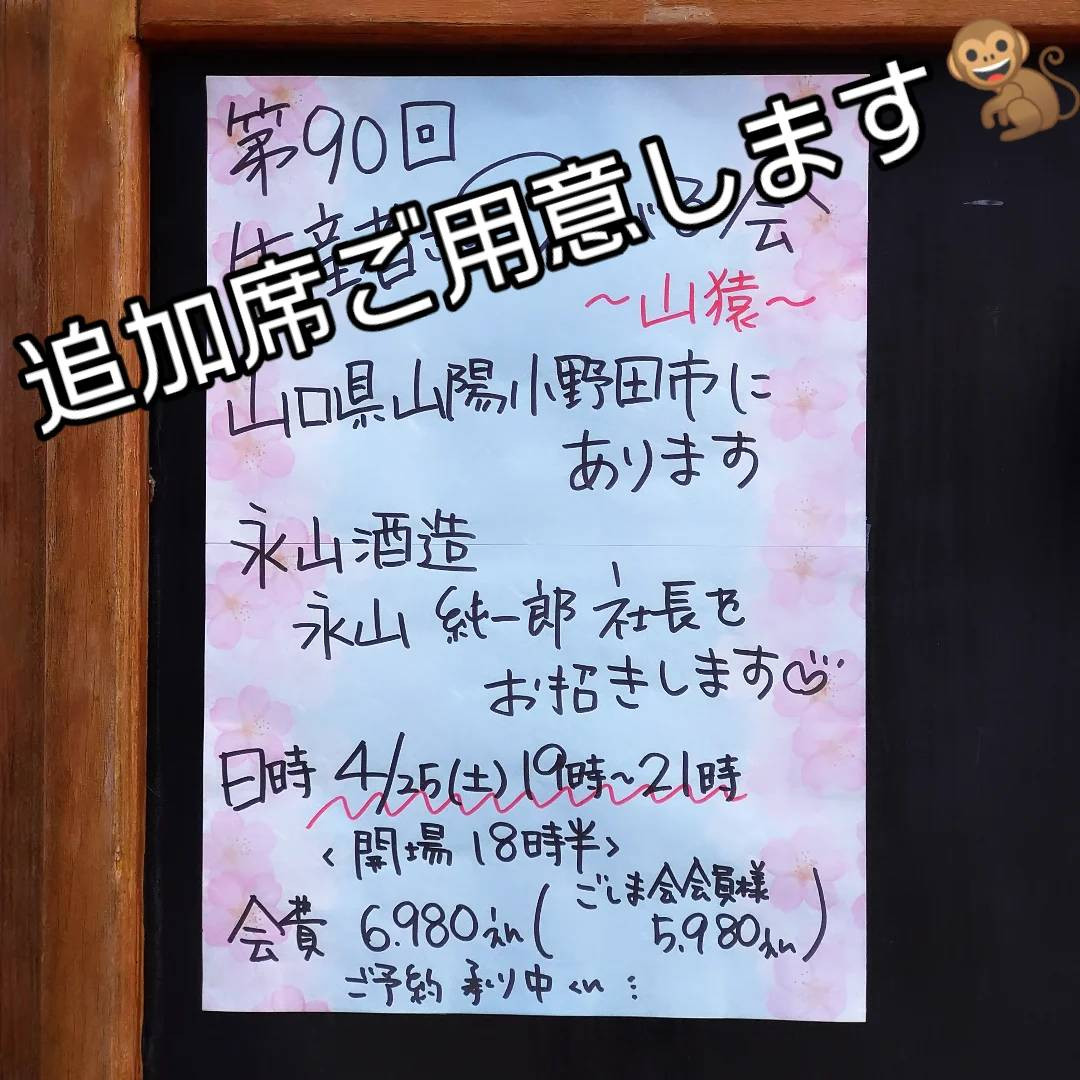 追加席ご用意します
第90回
生産者
会
~山猿~
山口県山陽小野田市に
あります
永山酒造
永山 純一郎 社長を
お招きします
日時 4/25(土)19時~21時
<開場 18時半>
会費 6.980
(ごしま会会員様
5,980)
ご予約 承り中